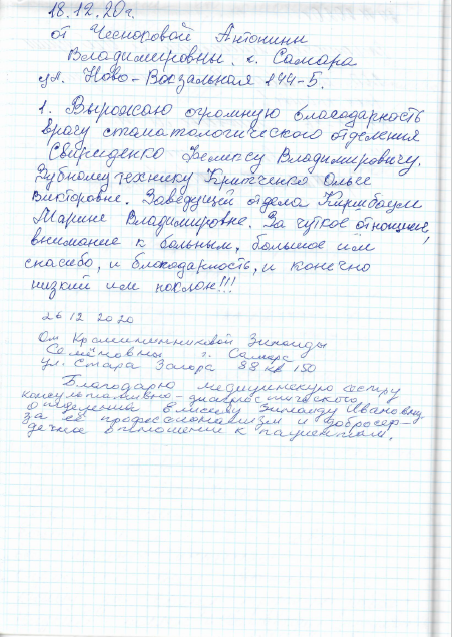 18.12.20г.
от Чесноковой Антонины
Владимировны. г. Самара
ул. Ново-Вокзальная 144-5.
1. Выражаю огромную благодарность
врачу стоматологического отделения
Свириденко Владимировичу.
Зубному технику Крипченко Ольге
Викторовне. Заведущей отдела Киршбаум
Марине Владимировне. За чуткое отношение,
внимание к больным, большое им
спасибо, и благодарность, и конечно
низкий им поклон!!!
26 12 2020
От Зинаиды
Семёновны г. Самара
ул. Стара Загора 88 кв 150
Благодарю медицинскую сестру
консультативно-диагностического
отделения Елисееву Зинаиду Ивановну
за её профессионализм и добросер-
дечное отношение к пациентам.